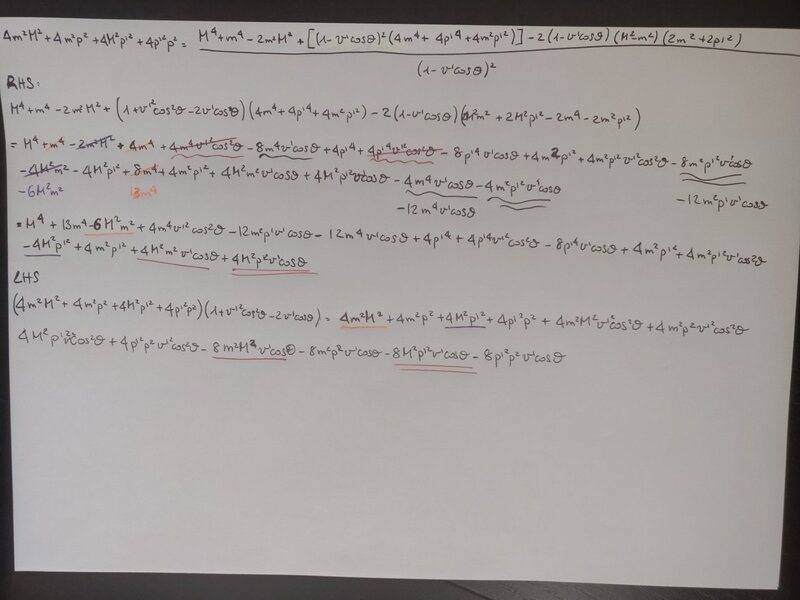 4m²M² + 4m²p² + 4M²p'² + 4p'²p² = M⁴ + m⁴ - 2m²M² + [(1 - v'cosθ)² (4m⁴ + 4p'⁴ + 4m²p'²)] - 2(1 - v'cosθ) (M²-m²) (2m² + 2p'²)
(1 - v'cosθ)²
RHS:
M⁴ + m⁴ - 2m²M² + (1 + v'²cos²θ - 2v'cosθ) (4m⁴ + 4p'⁴ + 4m²p'²) - 2(1 - v'cosθ) (2M²m² + 2M²p'² - 2m⁴ - 2m²p'²)
= M⁴ + m⁴ - 2m²M² + 4m⁴ + 4m⁴v'²cos²θ - 8m⁴v'cosθ + 4p'⁴ + 4p'⁴v'²cos²θ - 8p'⁴v'cosθ + 4m²p'² + 4m²p'²v'²cos²θ - 8m²p'²v'cosθ
- 4M²m² - 4M²p'² + 8m⁴ + 4m²p'² + 4M²m²v'cosθ + 4M²p'²v'cosθ - 4m⁴v'cosθ - 4m²p'²v'cosθ
-6M²m² 13m⁴ -12m⁴v'cosθ -12m²p'v'cosθ
= M⁴ + 13m⁴ - 6M²m² + 4m⁴v'²cos²θ - 12m²p'v'cosθ - 12m⁴v'cosθ + 4p'⁴ + 4p'⁴v'²cos²θ - 8p'⁴v'cosθ + 4m²p'² + 4m²p'²v'cos²θ
- 4M²p'² + 4m²p'² + 4M²m²v'cosθ + 4M²p'²v'cosθ
LHS
(4m²M² + 4m²p² + 4M²p'² + 4p'²p²) (1 + v'²cos²θ - 2v'cosθ) = 4m²M² + 4m²p² + 4M²p'² + 4p'²p² + 4m²M²v'²cos²θ + 4m²p²v'²cos²θ
4M²p'²v'²cos²θ + 4p'²p²v'²cos²θ - 8m²M²v'cosθ - 8m²p²v'cosθ - 8M²p'²v'cosθ - 8p'²p²v'cosθ